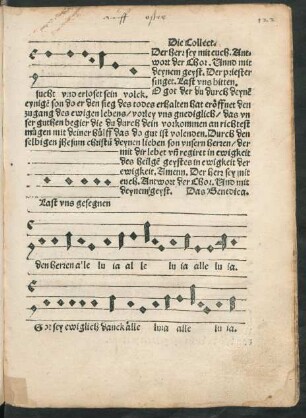 122
Die Collect.
Der herr sey mit euch. Ant-
wort der Chor. Unnd mit
deynem geyst. Der priester
singet. Last vns bitten.
sucht vnd erloset sein volck.
O got der du durch deynē
eynigē son do er den sieg des todes erhalten hat eröffnet den
zugang des ewigen lebens / vorley vns gnediglich / das vn
ser guthen begier die du durch dein vorkommen an richtest
mügen mit deiner hülff das do gut ist volenden. Durch den
selbigen jhesum christū deynen lieben son vnsern herren / der
mit dir lebet vñ regiret in ewigkeit
des heilgē geystes in ewigkeit der
ewigkeit. Amenn. Der herr sey mit
euch. Antwort der Chor. Und mit
deynem geyst. Das Benedica.
Last vns gesegnen
den herren alle lu ia al le lu ia alle lu ia.
Got sey ewiglich danck alle luia alle lu ia.